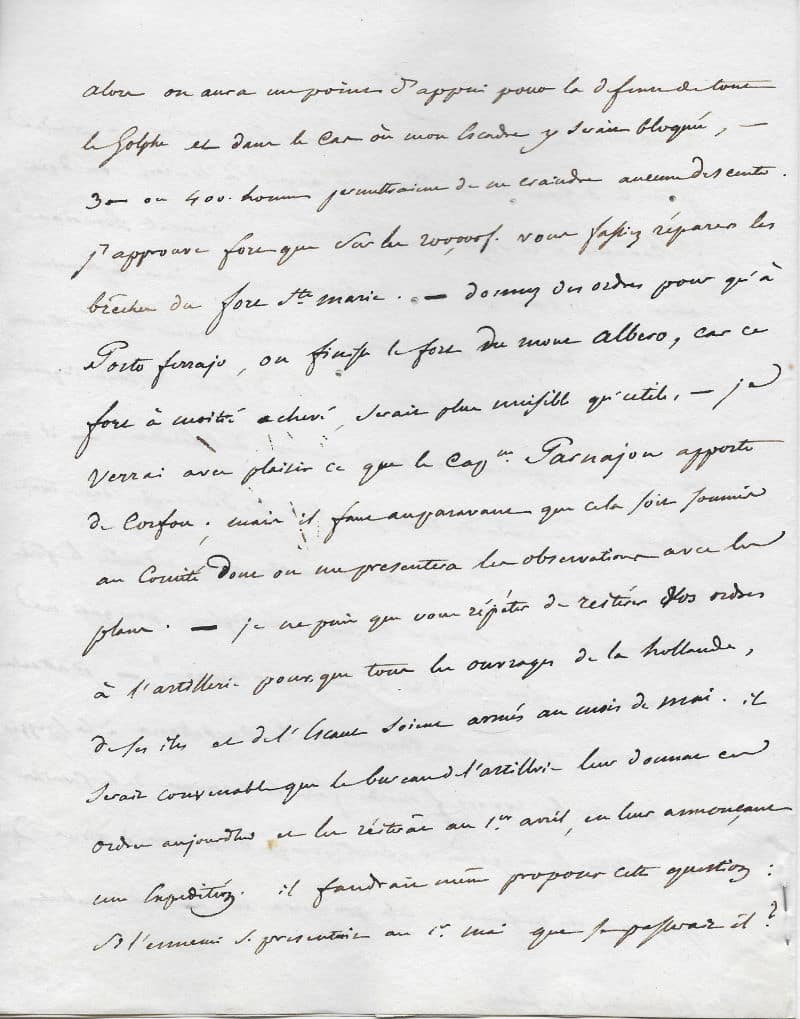 alors on aura un point d'appui pour la defense de tout
le Golphe et dans le cas où mon Escadre y serait bloquée, —
3 ou 400. hommes permettraient de ne craindre aucune descente.
j'approuve fort que sur les 200,000f. vous fassiez réparer les
brêches du fort Ste. marie. — donnez des ordres pour qu'à
Porto ferrajo, on finisse le fort du mont albero, car ce
fort à moitié achevé, serait plus nuisible qu'utile, — je
verrai avec plaisir ce que le Capne. Parnajon apporte
de Corfou; mais il faut auparavant que cela soit soumis
au Comité dont on me presentera les observations avec les
plans. — je ne puis que vous répéter de reitérer vos ordres
à l'artillerie pour que tous les ouvrages de la hollande,
de ses iles et de l'Escaut soient armés au mois de mai. il
serait convenable que le bureau de l'artillerie leur donnat ces
ordres aujourdhui et les réiterât au 1er. avril, en leur annonçant
une Expedition. il faudrait même proposer cette question:
Si l'ennemi se presentait au 1r. mai que se passerait il?